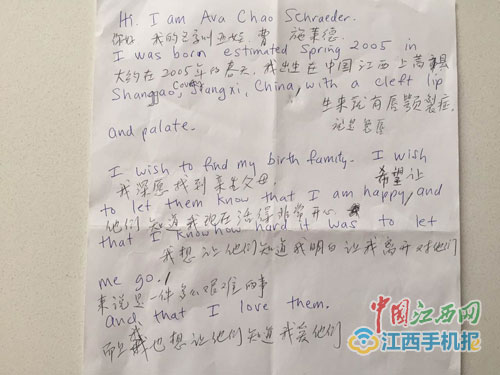 Hi. I am Ava Chao Schraeder.
你好 我的名字叫 施莱德.
I was born estimated Spring 2005 in
大约在2005年的春天, 我出生在中国江西上高县
Shangao, County Jiangxi, China, with a cleft lip
生来就有唇颚裂症.
and palate.
I wish to find my birth family. I wish
我深愿找到亲生父母. 希望让
to let them know that I am happy, and
他们知道我现在活得非常开心
that I know how hard it was to let
我想让他们知道我明白让我离开对他们
me go.
来说是一件多么艰难的事
and that I love them.
而且我也想让他们知道我爱他们
中国江西网
江西手机报